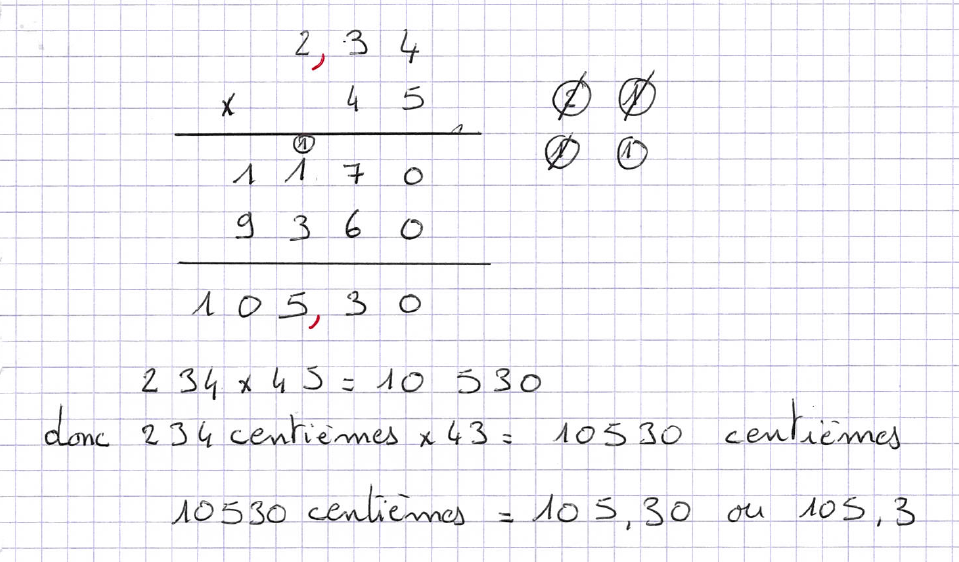 2,34
x 45 ② ①
① ① ①
1170
9360
105,30
234 x 45 = 10 530
donc 234 centièmes x 43 = 10530 centièmes
10530 centièmes = 105,30 ou 105,3